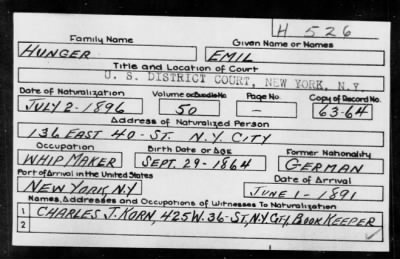 H 526
Family Name Given Name or Names
HUNGER EMIL
Title and Location of Court
U. S. DISTRICT COURT, NEW YORK, N.Y.
Date of Naturalization Volume or Bundle No. Page No. Copy of Record No.
JULY 2-1896 50 - 63-64
Address of Naturalized Person
136 EAST 40-ST. N.Y. CITY
Occupation Birth Date or Age Former Nationality
WHIP MAKER SEPT. 29-1864 GERMAN
Port of Arrival in the United States Date of Arrival
NEW YORK, N.Y JUNE 1-1891
Names, Addresses and Occupations of Witnesses To Naturalization
1 CHARLES J. KORN, 425 W. 36-ST, N.Y. CITY, BOOK KEEPER
2